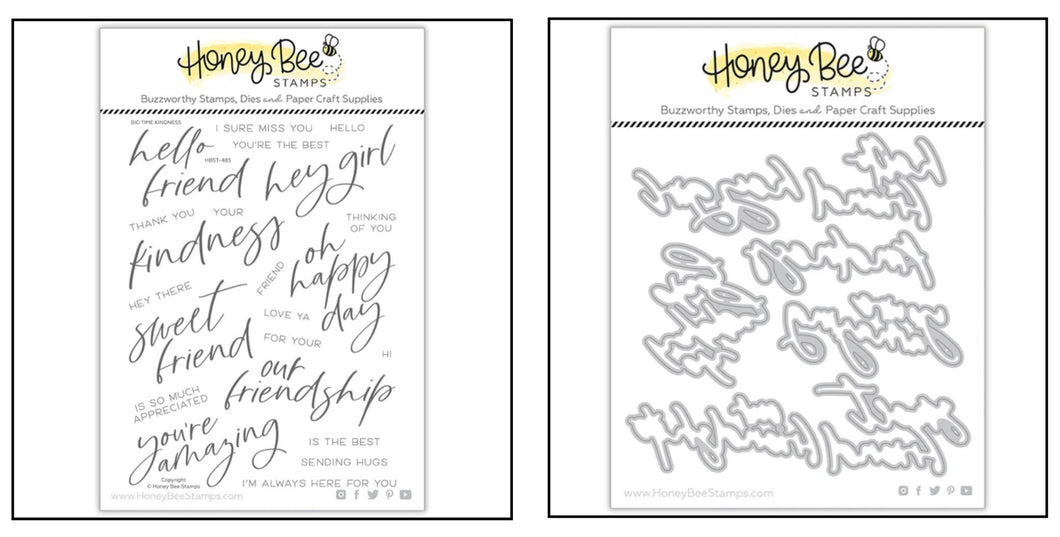 Honey Bee
STAMPS
Buzzworthy Stamps, Dies and Paper Craft Supplies
BIG TIME KINDNESS
I SURE MISS YOU
HELLO
hello
YOU'RE THE BEST
HBST-485
friend
hey girl
THANK YOU
YOUR
THINKING
OF YOU
kindness
oh
happy
day
FRIEND
HEY THERE
sweet
friend
LOVE YA
FOR YOUR
HI
our
friendship
IS SO MUCH
APPRECIATED
you're
amazing
IS THE BEST
SENDING HUGS
I'M ALWAYS HERE FOR YOU
Copyright
© Honey Bee Stamps
www.HoneyBeeStamps.com
Honey Bee
STAMPS
Buzzworthy Stamps, Dies and Paper Craft Supplies
www.HoneyBeeStamps.com